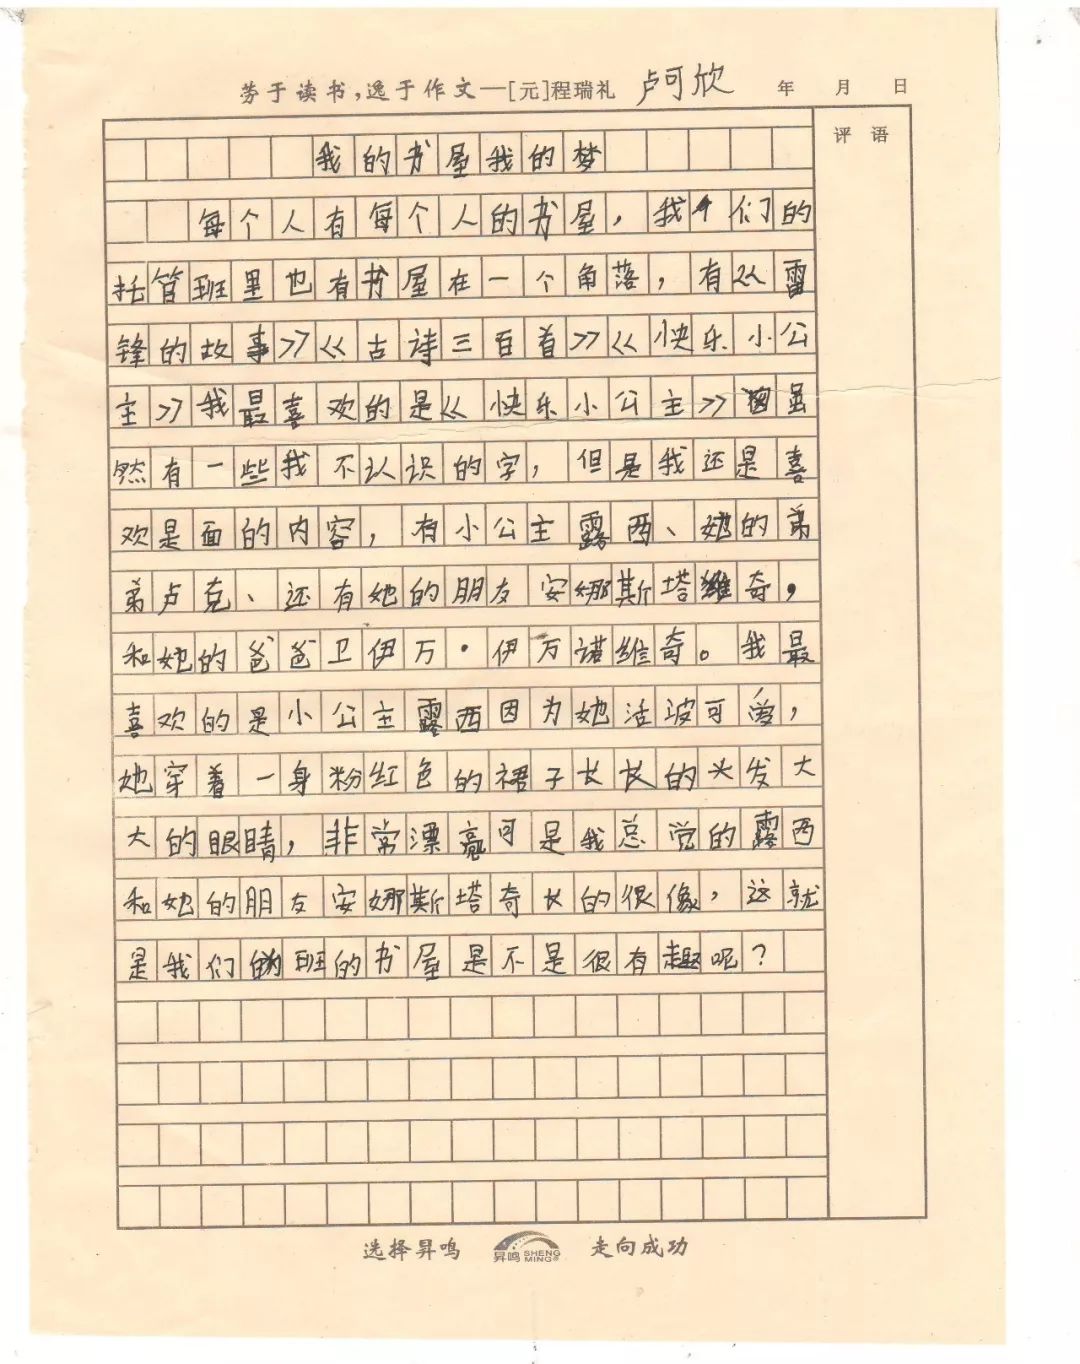 劳于读书,逸于作文—[元]程瑞礼 卢可欣 年 月 日
评语
我的书屋我的梦
每个人有每个人的书屋,我个们的
托管班里也有书屋在一个角落,有《雷
锋的故事》《古诗三百首》《快乐小公
主》我最喜欢的是《快乐小公主》虽
然有一些我不认识的字,但是我还是喜
欢是面的内容,有小公主露西、她的弟
弟卢克、还有她的朋友安娜斯塔维奇,
和她的爸爸卫伊万·伊万诺维奇。我最
喜欢的是小公主露西因为她活波可爱,
她穿着一身粉红色的裙子长长的头发大
大的眼睛,非常漂亮可是我总觉的露西
和她的朋友安娜斯塔奇长的很像,这就
是我们的班的书屋是不是很有趣呢?
选择昇鸣 昇鸣 SHENG MING® 走向成功